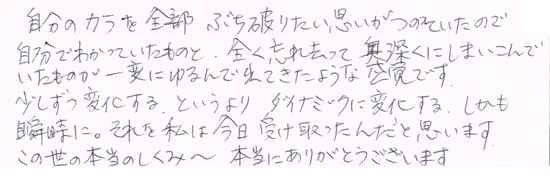 自分のカラを全部 ぶち破りたい思いがつのっていたので
自分でわかっていたものと、全く忘れ去って奥深くにしまいこんで
いたものが一変にゆるんで出てきたような感覚です。
少しずつ変化する、というより ダイナミックに変化する、しかも
瞬時に。それを私は今日受け取ったんだと思います
この世の本当のしくみ〜 本当にありがとうございます